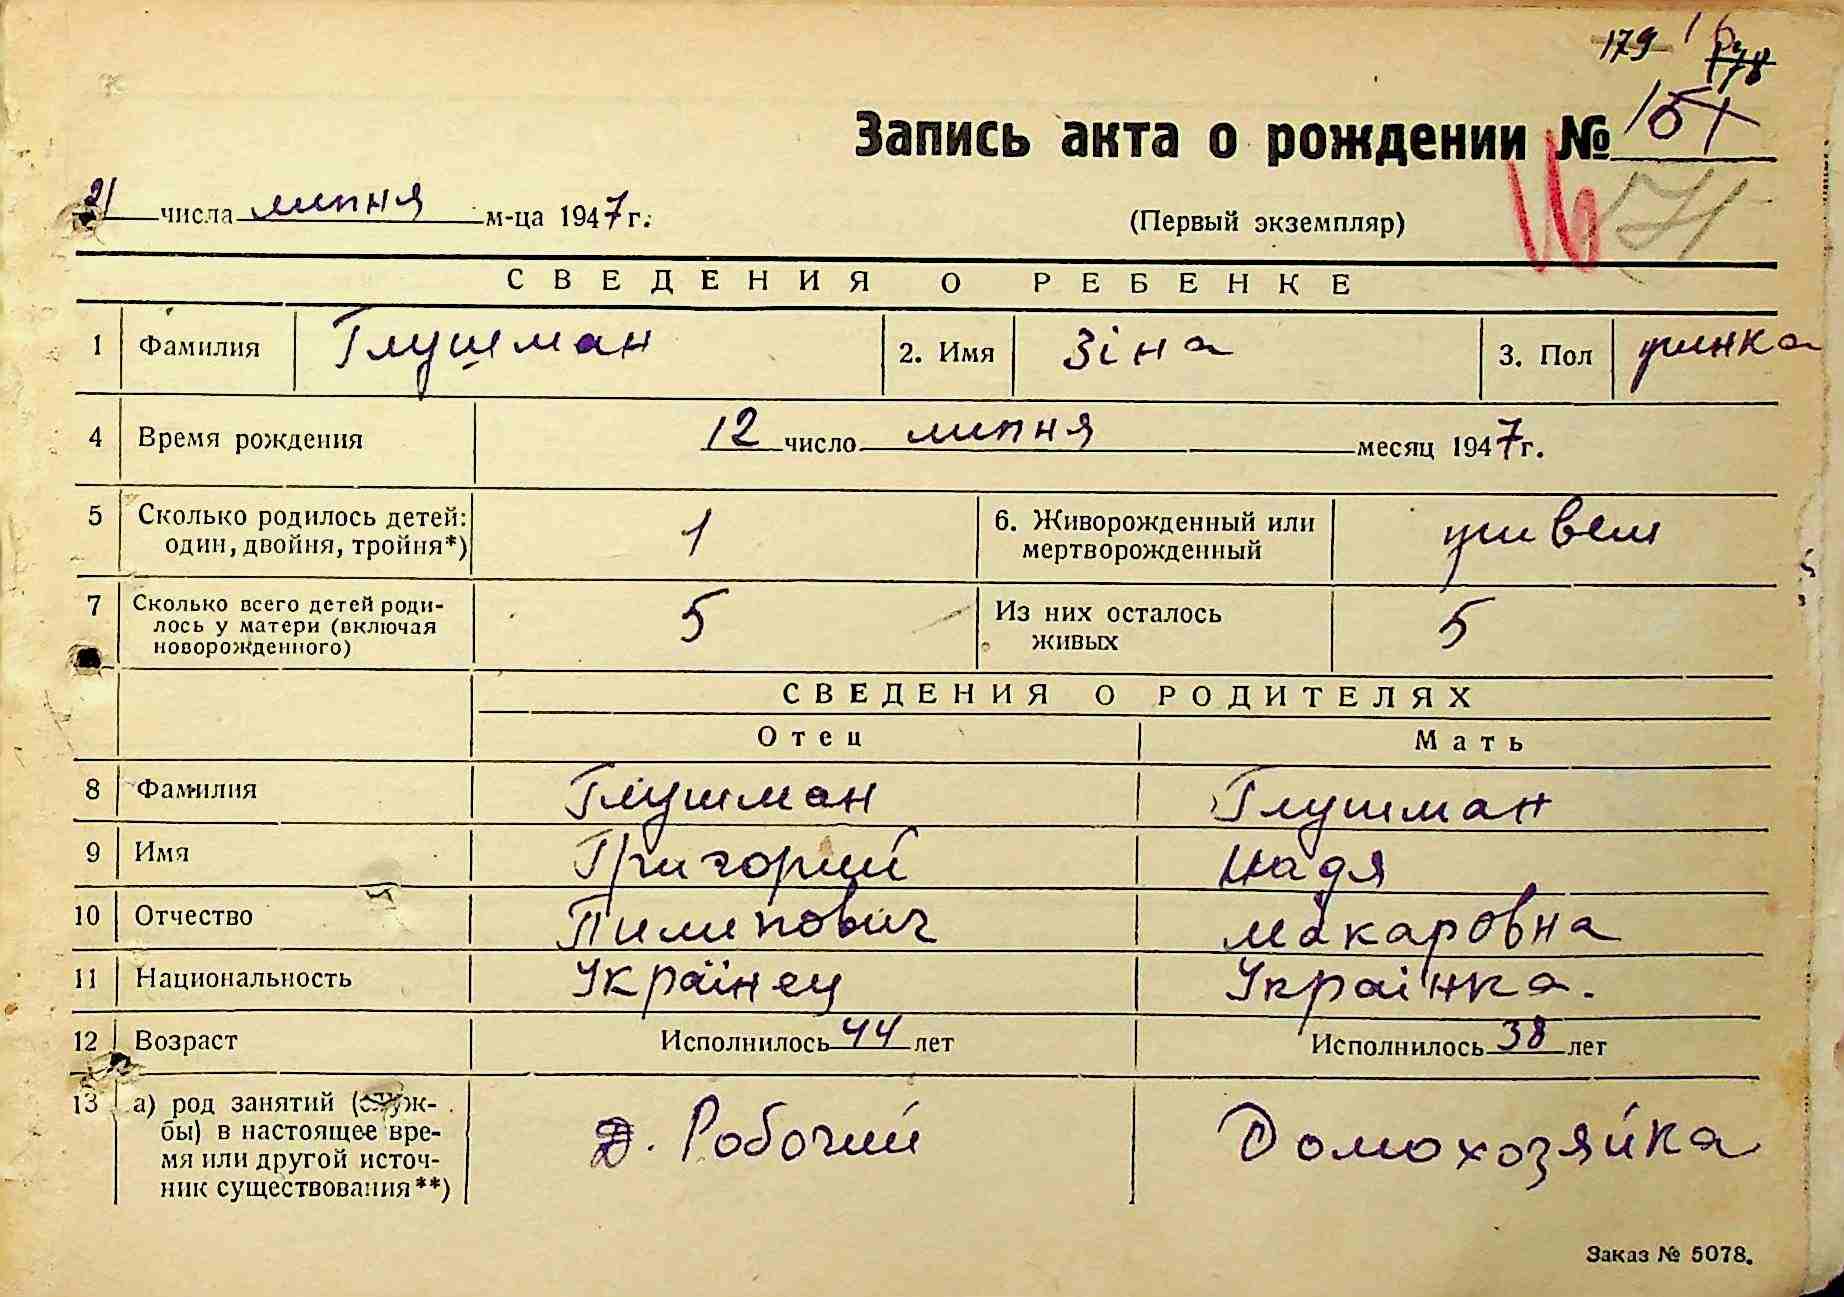 179 16
178
Запись акта о рождении № 151
21 числа липня м-ца 1947 г.
(Первый экземпляр) 16 171
СВЕДЕНИЯ О РЕБЕНКЕ
1 Фамилия Глушман 2. Имя Зіна 3. Пол жинка
4 Время рождения 12 число липня месяц 1947 г.
5 Сколько родилось детей: 1 6. Живорожденный или живем
один, двойня, тройня*) мертворожденный
7 Сколько всего детей роди- 5 Из них осталось 5
лось у матери (включая живых
новорожденного)
СВЕДЕНИЯ О РОДИТЕЛЯХ
Отец Мать
8 Фамилия Глушман Глушман
9 Имя Григорий Надя
10 Отчество Пилипович Макаровна
11 Национальность Украінец Украінка.
12 Возраст Исполнилось 44 лет Исполнилось 38 лет
13 а) род занятий (служ- Д. Робочий Домохозяйка
бы) в настоящее вре-
мя или другой источ-
ник существования**)
Заказ № 5078.